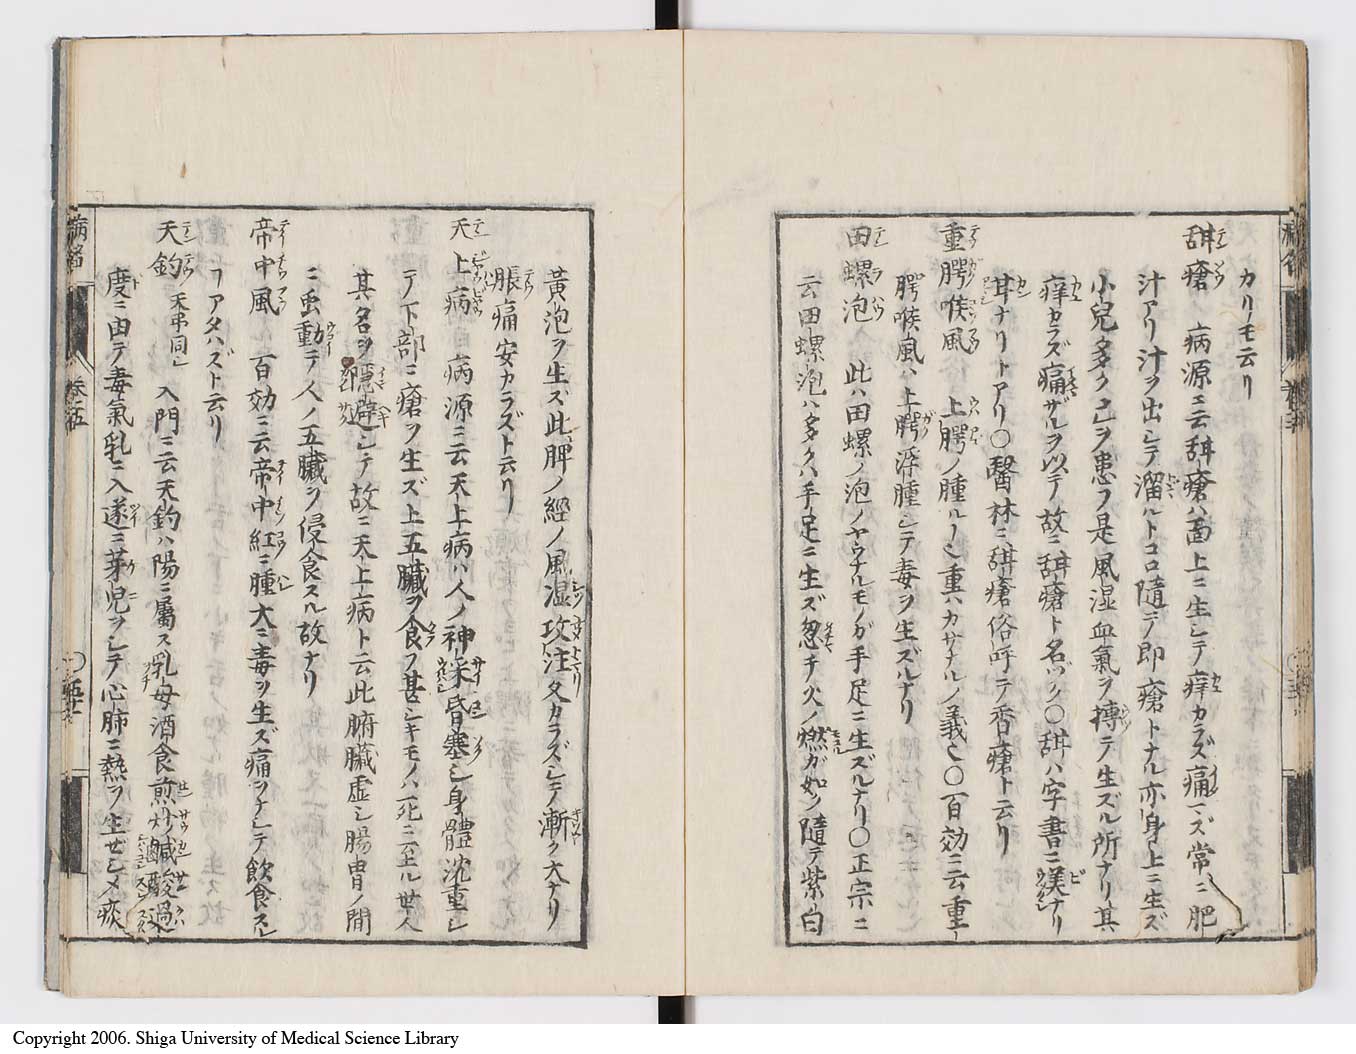 カリモ云リ
甜瘡 病源ニ云甜瘡ハ面上ニ生シテ痒カラズ痛マズ常ニ肥
汁アリ汁ヲ出シテ溜ルトコロ隨テ即瘡トナル亦身上ニ生ズ
小兒多ク己ヲ患フ是風湿血氣ヲ搏テ生ズル所ナリ其
痒カラズ痛サルヲ以テ故ニ甜瘡ト名ヅク〇甜ハ字書ニ美ナリ
甘ナリトアリ〇醫林ニ甜瘡俗呼テ香瘡ト云リ
重腭喉風 上腭ノ腫ル丶也重ハカサナルノ義也〇百効ニ云重
腭喉風ハ上腭浮腫シテ毒ヲ生ズルナリ
田螺泡 此ハ田螺ノ泡ノヤウナルモノガ手足ニ生ズルナリ〇正宗ニ
云田螺泡ハ多クハ手足ニ生ズ忽チ火ノ燃ガ如ク隨テ紫白
黃泡ヲ生ズ此脾ノ經ノ風湿攻注久カラズシテ漸ク大ナリ
脹痛安カラズト云リ
天上病 病源ニ云天上病ハ人ノ神采昏塞シ身體沈重シ
テ下部ニ瘡ヲ生ズ上五臟ヲ食フ甚シキモノハ死ニ至ル世人
其名ヲ隱避シテ故ニ天上病ト云此腑臟虚シ腸胃ノ間
ニ虫動テ人ノ五臟ヲ侵食スル故ナリ
帝中風 百効ニ云帝中紅ニ腫大ニ毒ヲ生ズ痛ヲナシテ飲食スル
ヿアタハズト云リ
天釣 天弔同シ 入門ニ云天釣ハ陽ニ屬ス乳母酒食煎炒鹹酸過
度ニ由テ毒氣乳ニ入遂ニ芽児ヲシテ心肺ニ熱ヲ生ゼシメ痰
病名
卷五
Copyright 2006. Shiga University of Medical Science Library